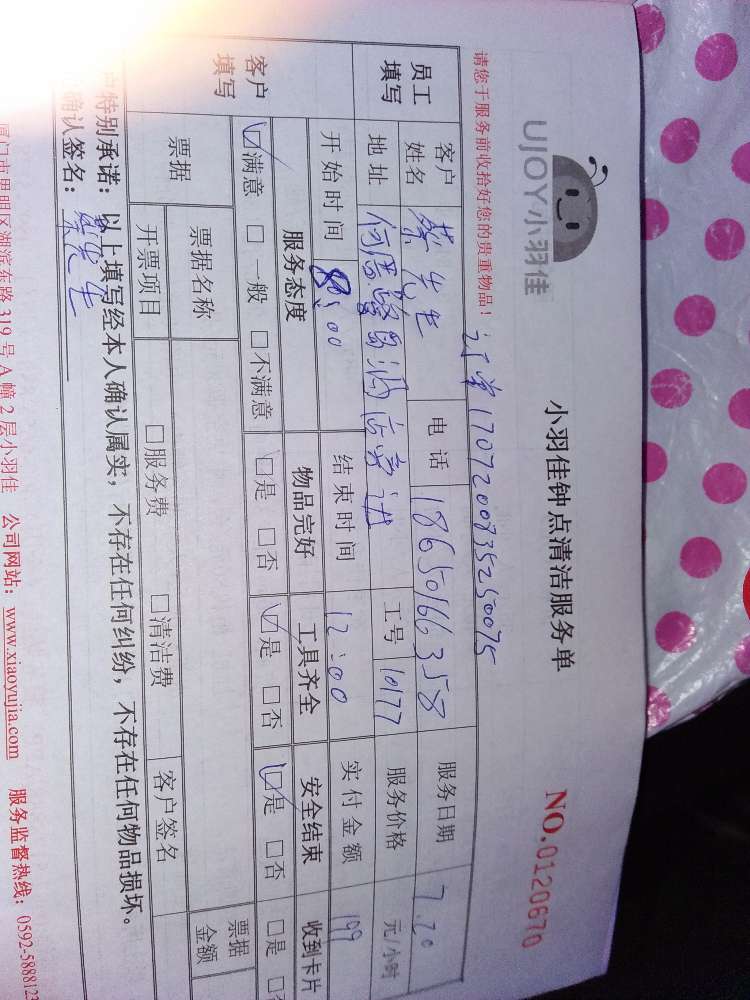 UJOY小羽佳
小羽佳钟点清洁服务单
NO.0120670
请您于服务前收拾好您的贵重物品！
订单1707200835250075
员工填写
客户姓名 蔡先生 电话 18650166358 服务日期 7.20
地址 工号 10177 服务价格 元/小时
开始时间 8:00 结束时间 12:00 实付金额 199
客户填写
服务态度 物品完好 工具齐全 安全结束 收到卡片
☑满意 □一般 □不满意 □是 □否 ☑是 □否 ☑是 □否 □是
票据 票据名称 票据金额
开票项目 □服务费 □清洁费 客户签名
特别承诺：以上填写经本人确认属实，不存在任何纠纷，不存在任何物品损坏。
确认签名：蔡先生
厦门市思明区湖滨东路319号A幢2层小羽佳 公司网站：www.xiaoyujia.com 服务监督热线：0592-5888123